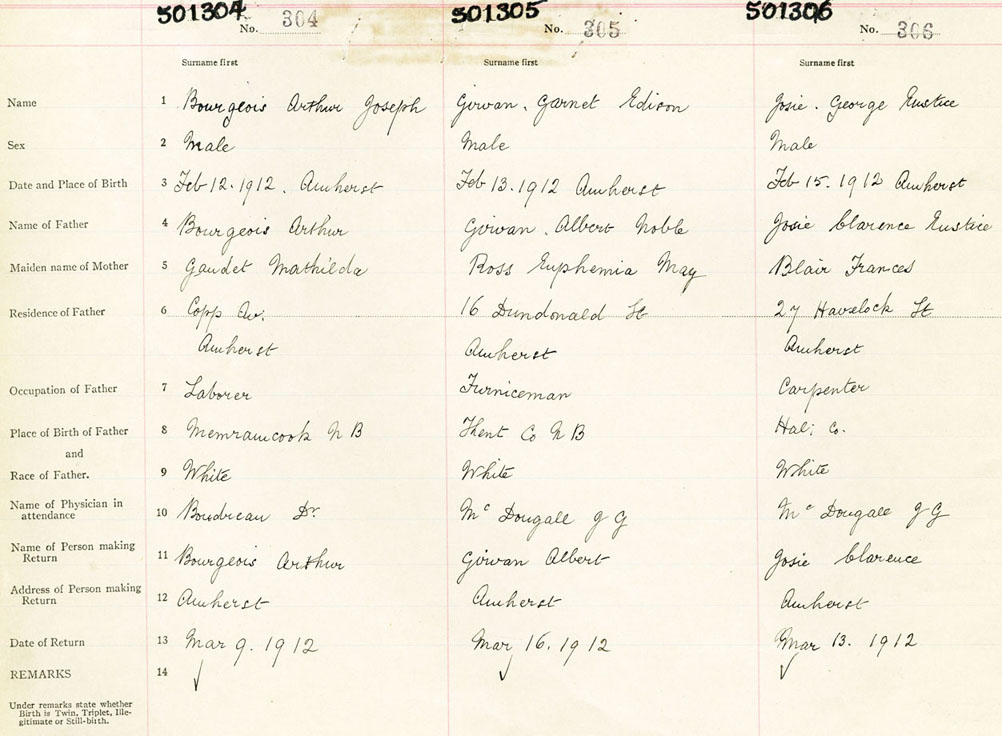 501304 501305 501306
No. 304 No. 305 No. 306
Surname first Surname first Surname first
Name 1 Bourgeois Arthur Joseph Girvan. Garnet Edison Josie. George Eustice
Sex 2 Male Male Male
Date and Place of Birth 3 Feb 12. 1912. Amherst Feb 13. 1912 Amherst Feb 15. 1912 Amherst
Name of Father 4 Bourgeois Arthur Girvan. Albert Noble Josie Clarence Eustice
Maiden name of Mother 5 Gaudet Mathilda Ross Euphemia May Blair Frances
Residence of Father 6 Copp Av. 16 Dundonald St 27 Havelock St
Amherst Amherst Amherst
Occupation of Father 7 Laborer Furniceman Carpenter
Place of Birth of Father 8 Memramcook N B Kent Co N B Hal. Co.
and
Race of Father. 9 White White White
Name of Physician in
attendance 10 Boudreau Dr. Mc Dougall G G Mc Dougall G G
Name of Person making
Return 11 Bourgeois Arthur Girvan Albert Josie Clarence
Address of Person making
Return 12 Amherst Amherst Amherst
Date of Return 13 Mar 9. 1912 Mar 16. 1912 Mar 13. 1912
REMARKS 14 ✓ ✓ ✓
Under remarks state whether
Birth is Twin, Triplet, Ille-
gitimate or Still-birth.